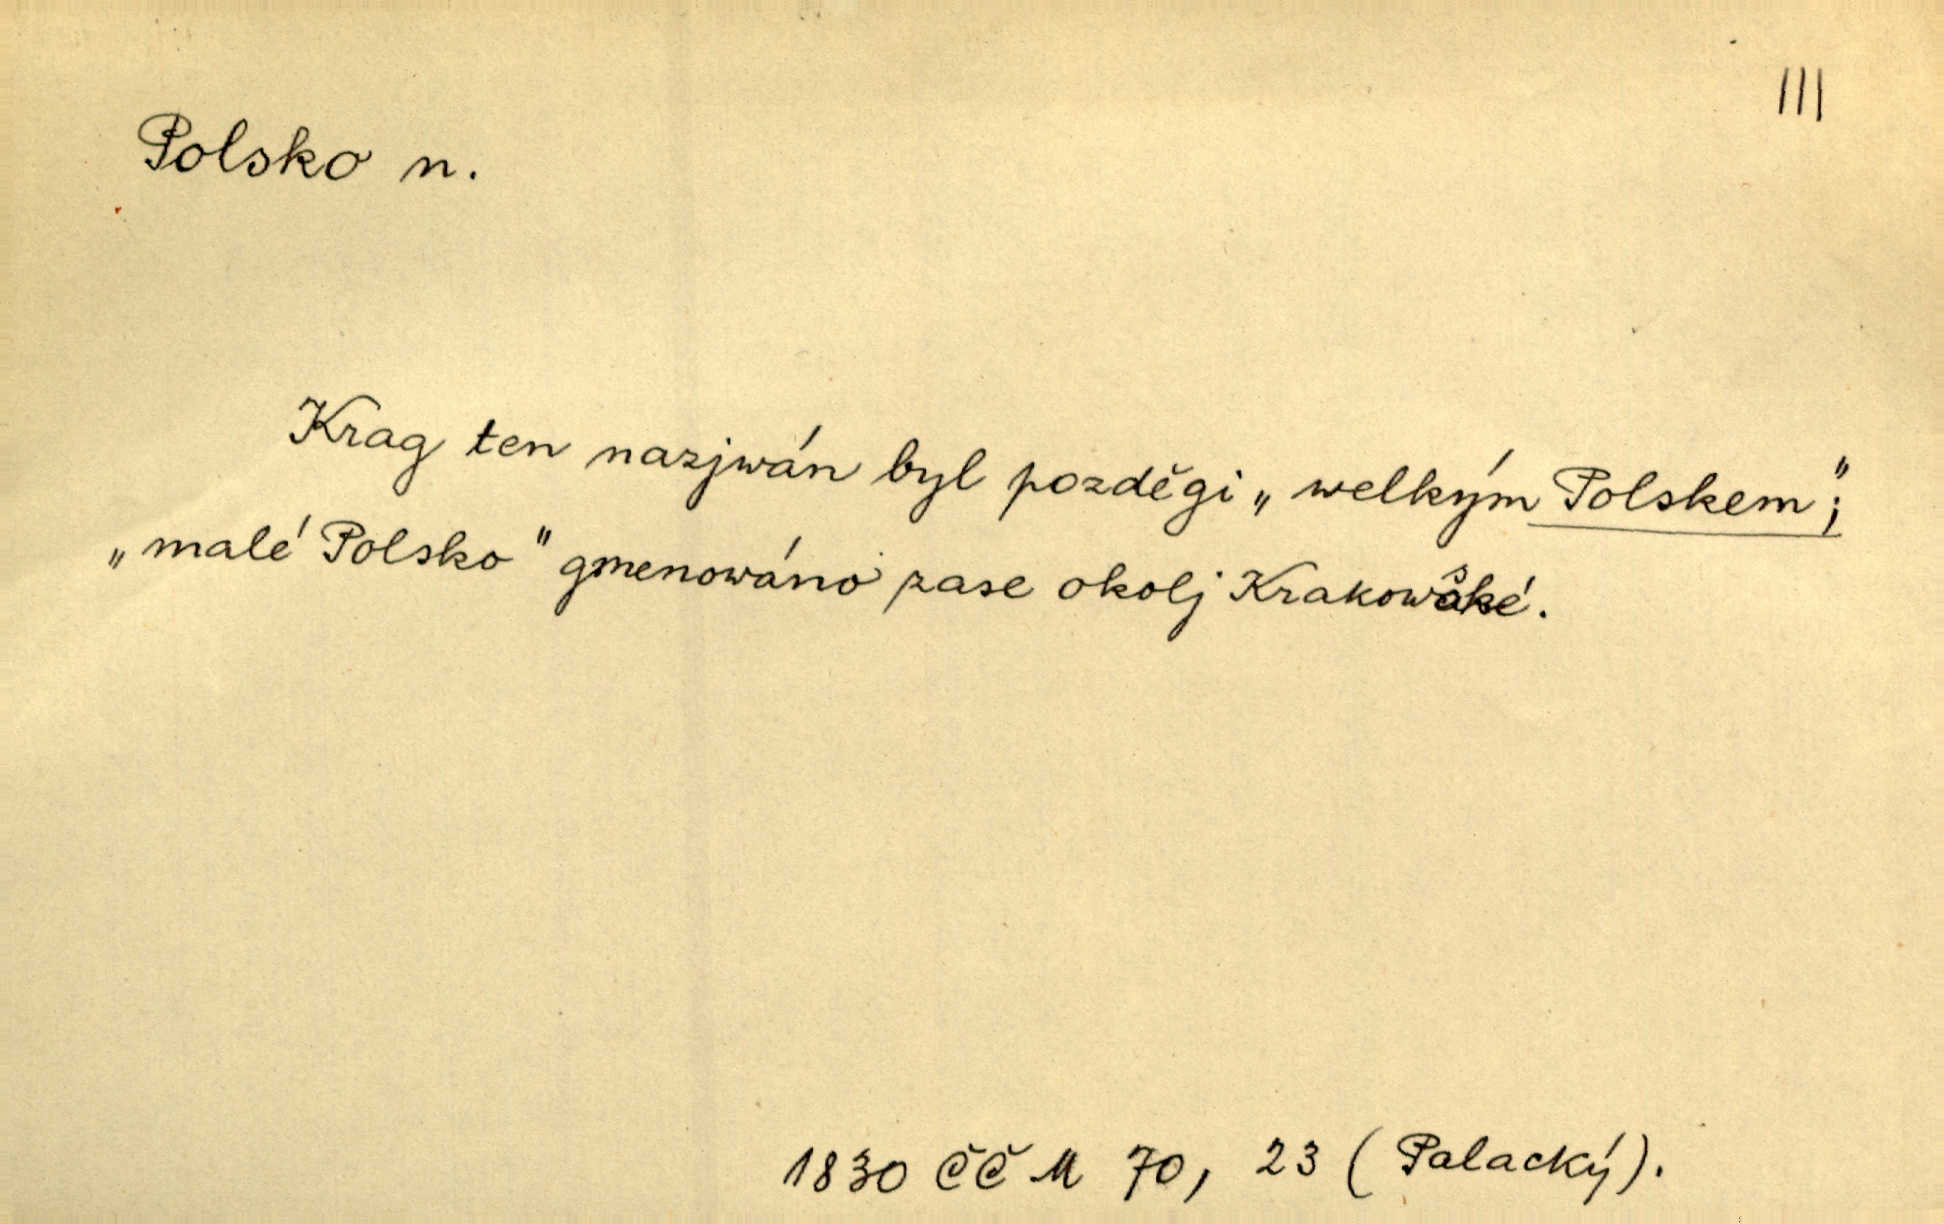 III
Polsko n.
Krag ten nazjwán byl pozděgi „welkým Polskem";
„malé Polsko" gmenowáno zase okolj Krakowské.
1830 ČČM 70, 23 (Palacký).